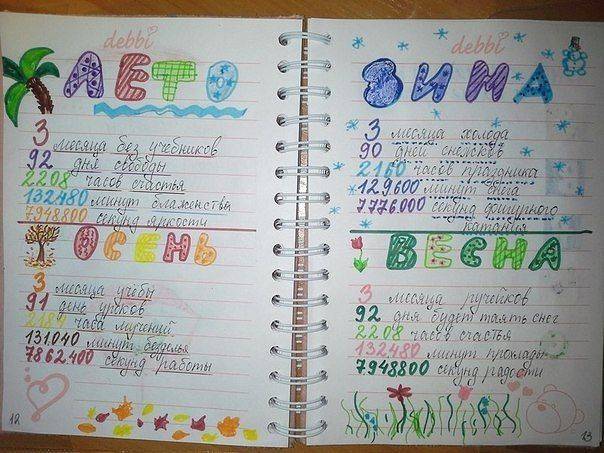 debbi
ЛЕТО
3 месяца без учебников
92 дня свободы
2208 часов счастья
132480 минут блаженства
7948800 секунд яркости
ОСЕНЬ
3 месяца учёбы
91 день уроков
2184 часа мучений
131040 минут безделья
7862400 секунд работы
12
debbi
ЗИМА
3 месяца холода
90 дней снежков
2160 часов праздника
129600 минут снега
7.776.000 секунд фигурного
катания
ВЕСНА
3 месяца ручейков
92 дня будет таять снег
2208 часов счастья
132480 минут прохлады
7948800 секунд радости
13